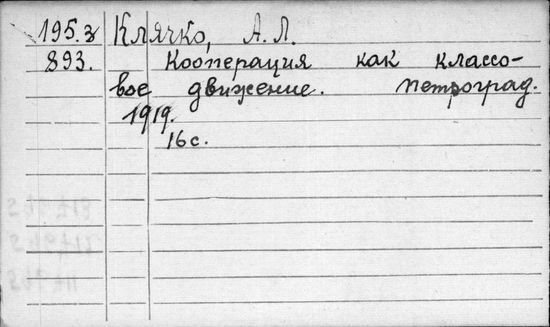 195.3 Клячко, А. Л.
893. Кооперация как классо-
вое движение. Петроград.
1919.
16 с.